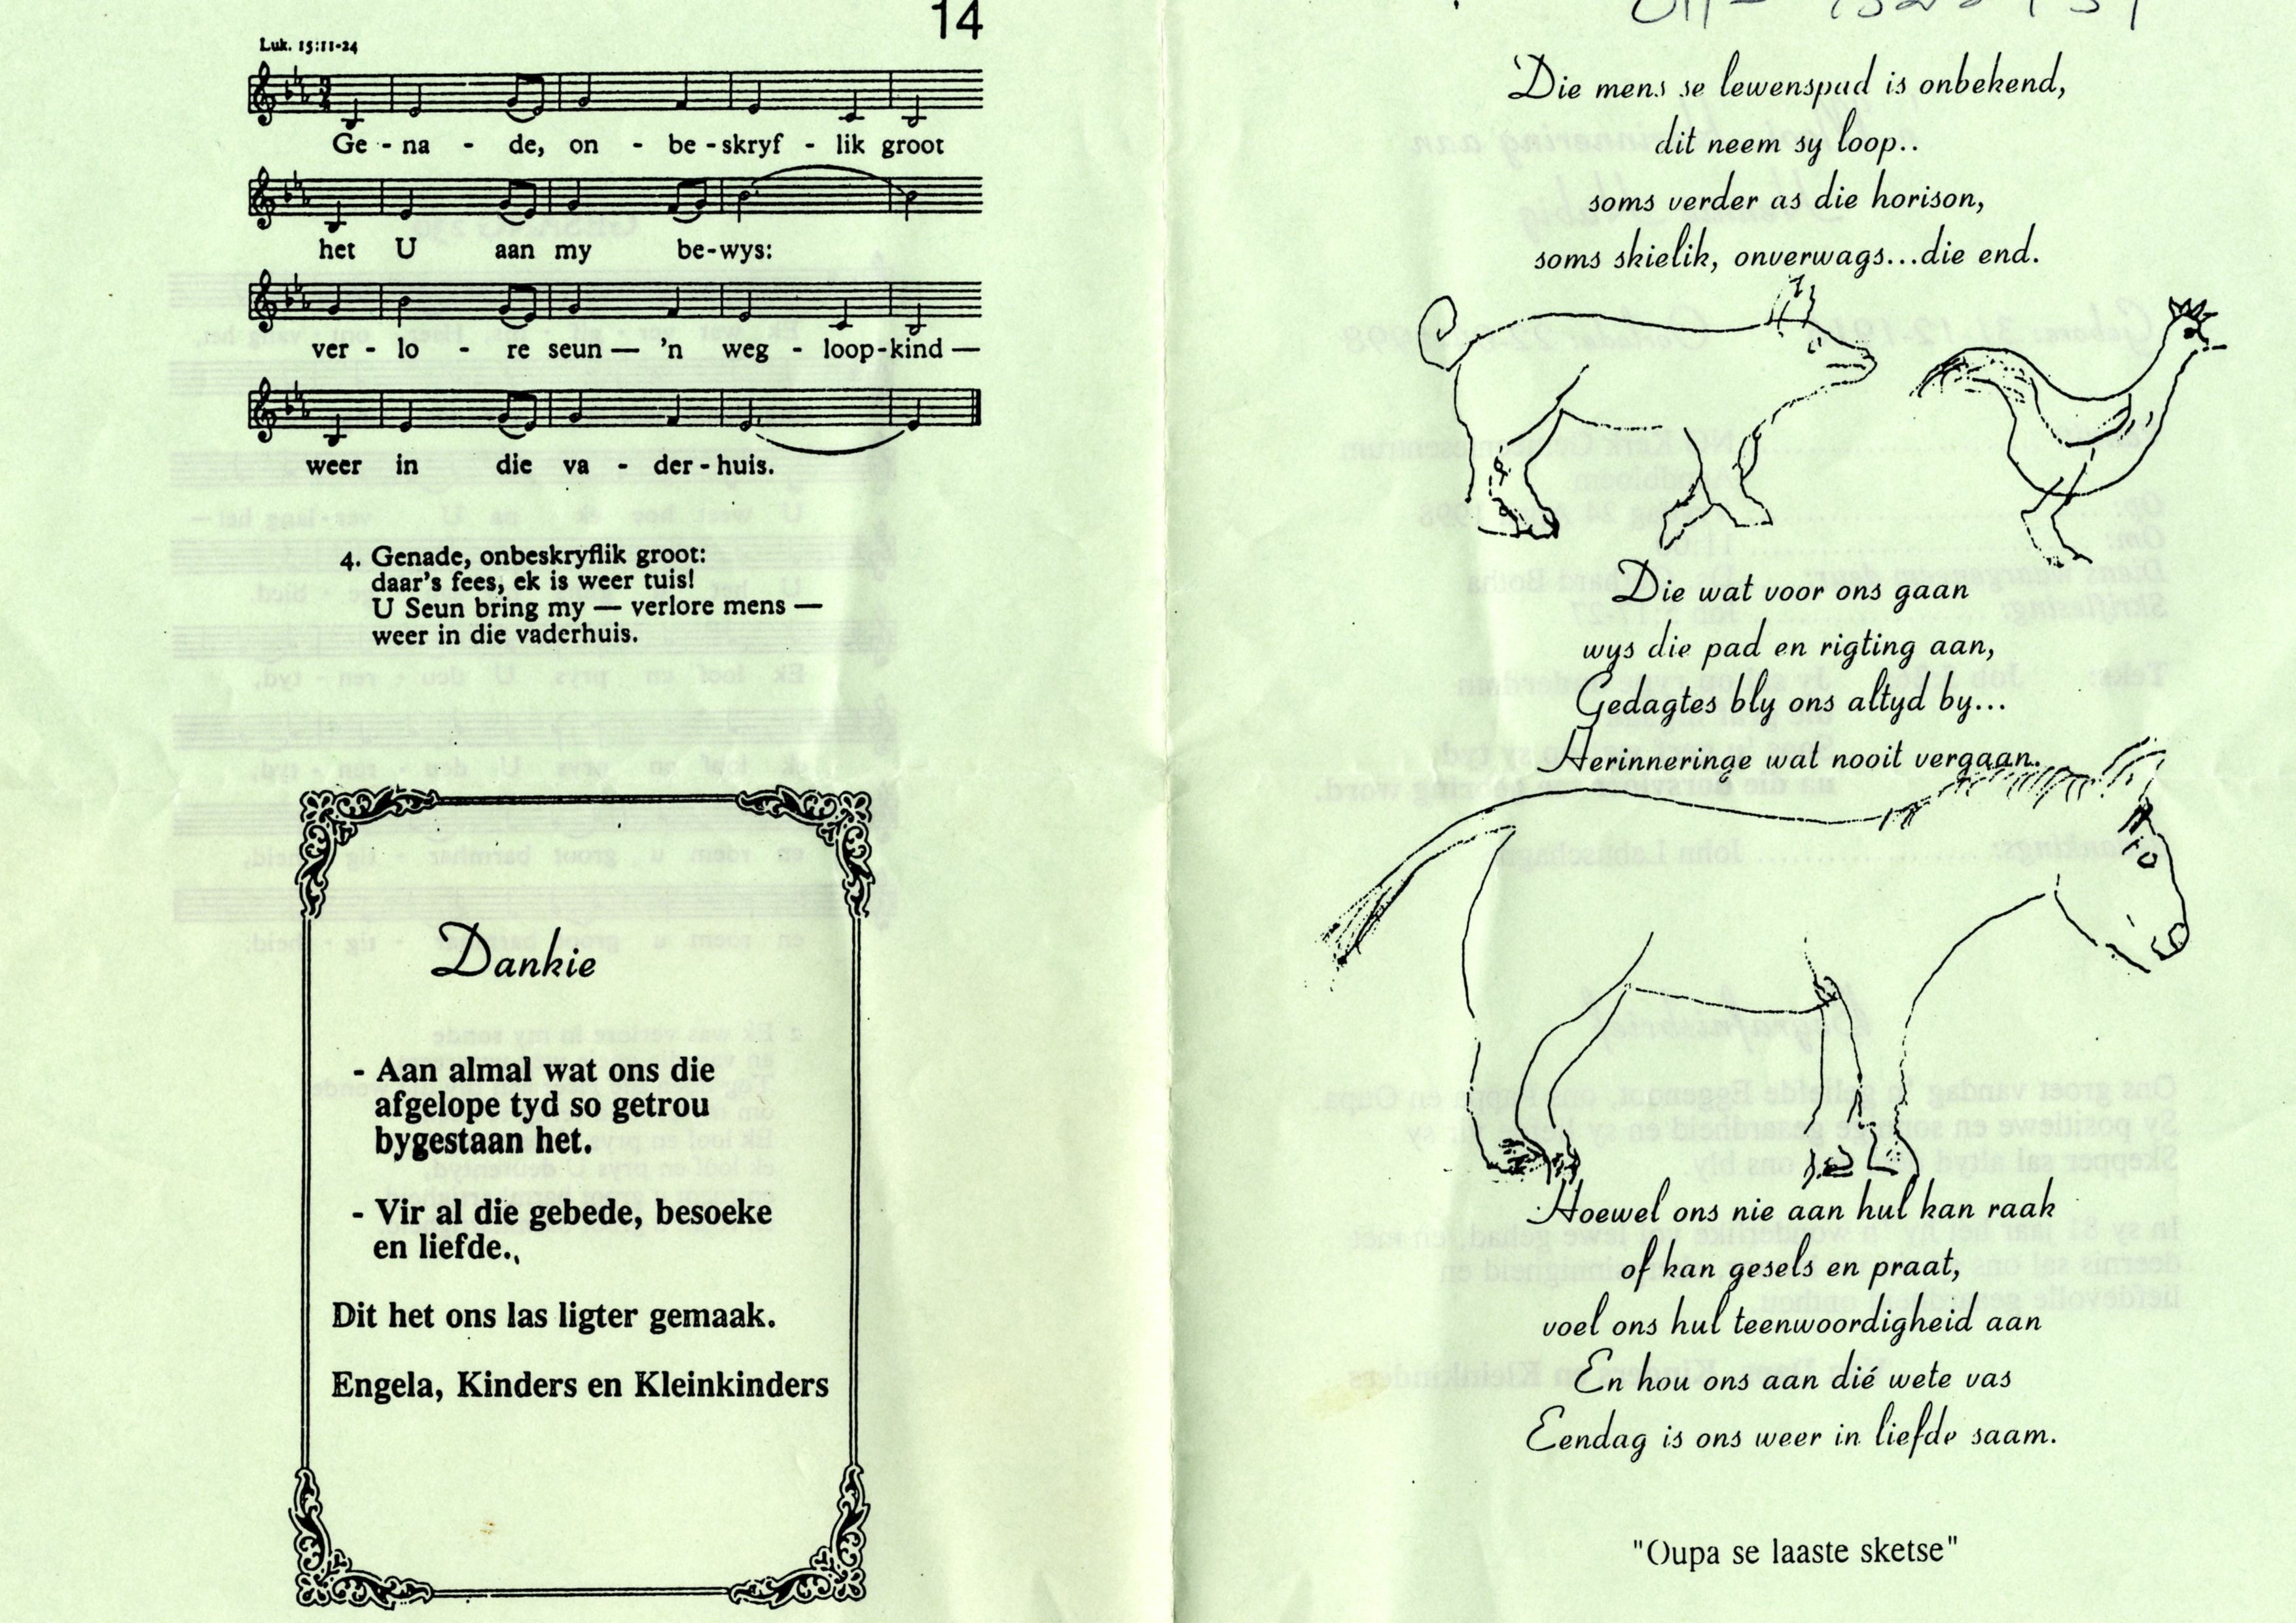 14
Luk. 15:11-24
Ge - na - de, on - be - skryf - lik groot
het U aan my be-wys:
ver - lo - re seun — 'n weg - loop-kind —
weer in die va - der-huis.
4. Genade, onbeskryflik groot:
daar's fees, ek is weer tuis!
U Seun bring my — verlore mens —
weer in die vaderhuis.
Dankie
- Aan almal wat ons die
afgelope tyd so getrou
bygestaan het.
- Vir al die gebede, besoeke
en liefde.,
Dit het ons las ligter gemaak.
Engela, Kinders en Kleinkinders
Die mens se lewenspad is onbekend,
dit neem sy loop..
soms verder as die horison,
soms skielik, onverwags...die end.
Die wat voor ons gaan
wys die pad en rigting aan,
Gedagtes bly ons altyd by...
Herinneringe wat nooit vergaan.
Hoewel ons nie aan hul kan raak
of kan gesels en praat,
voel ons hul teenwoordigheid aan
En hou ons aan dié wete vas
Eendag is ons weer in liefde saam.
"Oupa se laaste sketse"